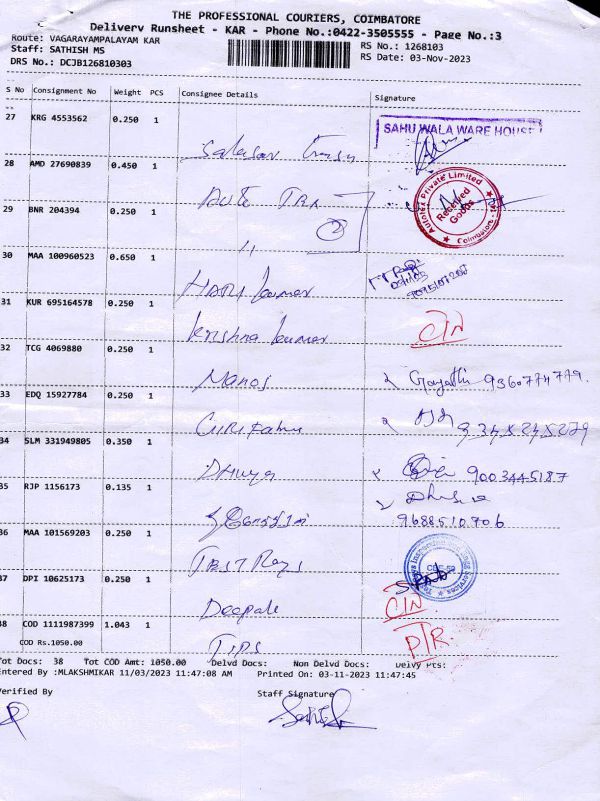 THE PROFESSIONAL COURIERS, COIMBATORE
Delivery Runsheet - KAR - Phone No.:0422-3505555 - Page No.:3
Route: VAGARAYAMPALAYAM KAR
RS No.: 1268103
Staff: SATHISH MS
RS Date: 03-Nov-2023
DRS No.: DCJB126810303
S No Consignment No Weight PCS Consignee Details Signature
27 KRG 4553562 0.250 1
SAHU WALA WARE HOUSE
28 AMD 27690839 0.450 1
Autotex Private Limited
Received Goods
Coimbatore
29 BNR 204394 0.250 1
②
"
30 MAA 100960523 0.650 1
Hari kumar
31 KUR 695164578 0.250 1
Krishna kumar
CIN
32 TCG 4069880 0.250 1
Manoj
Gayathi 9360774779.
33 EDQ 15927784 0.250 1
9345245279
34 SLM 331949805 0.350 1
Dhivya
9003445187
35 RJP 1156173 0.135 1
9688510706
36 MAA 101569203 0.250 1
Test Rays
CBE-59
37 DPI 10625173 0.250 1
Deepak
CIN
38 COD 1111987399 1.043 1
COD Rs.1050.00
TIPS
PTR.
Tot Docs: 38 Tot COD Amt: 1050.00 Delvd Docs: Non Delvd Docs: Delvy Pts:
Entered By :MLAKSHMIKAR 11/03/2023 11:47:08 AM Printed On: 03-11-2023 11:47:45
Verified By
Staff Signature